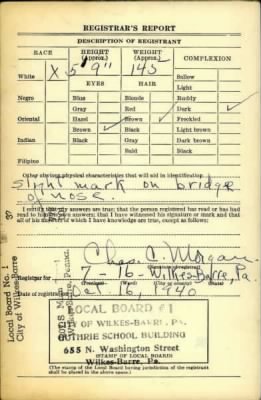 REGISTRAR'S REPORT
DESCRIPTION OF REGISTRANT
RACE HEIGHT (Approx.) WEIGHT (Approx.) COMPLEXION
White X 5' 9" 145 Sallow
EYES HAIR Light
Negro Blue Blonde Ruddy
Gray Red Dark ✓
Oriental Hazel Brown ✓ Freckled
Brown ✓ Black Light brown
Indian Black Gray Dark brown
Bald Black
Filipino
Other obvious physical characteristics that will aid in identification
slight mark on bridge
of nose.
I certify that my answers are true; that the person registered has read or has had
read to him his own answers; that I have witnessed his signature or mark and that
all of his answers of which I have knowledge are true, except as follows:
Chas. C. Morgan
Registrar for 7 - 16 - Wilkes-Barre, Pa.
Date of registration Oct. 16, 1940
LOCAL BOARD #1
CITY OF WILKES-BARRE, PA.
GUTHRIE SCHOOL BUILDING
655 N. Washington Street
(STAMP OF LOCAL BOARD)
Wilkes-Barre, Pa.
(The stamp of the Local Board having jurisdiction of the registrant
shall be placed in the above space.)
Local Board No. 1
City of Wilkes-Barre
37